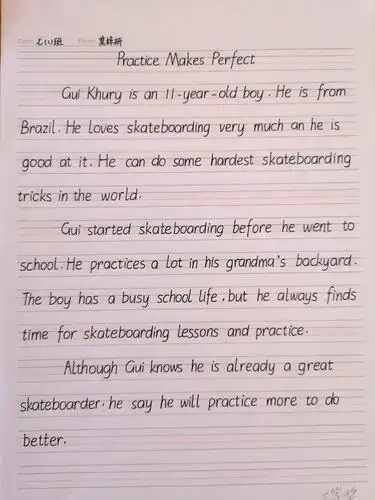 Practice Makes Perfect
Gui Khury is an 11-year-old boy. He is from
Brazil. He loves skateboarding very much an he is
good at it. He can do some hardest skateboarding
tricks in the world.
Gui started skateboarding before he went to
school. He practices a lot in his grandma's backyard.
The boy has a busy school life, but he always finds
time for skateboarding lessons and practice.
Although Gui knows he is already a great
skateboarder, he say he will practice more to do
better.